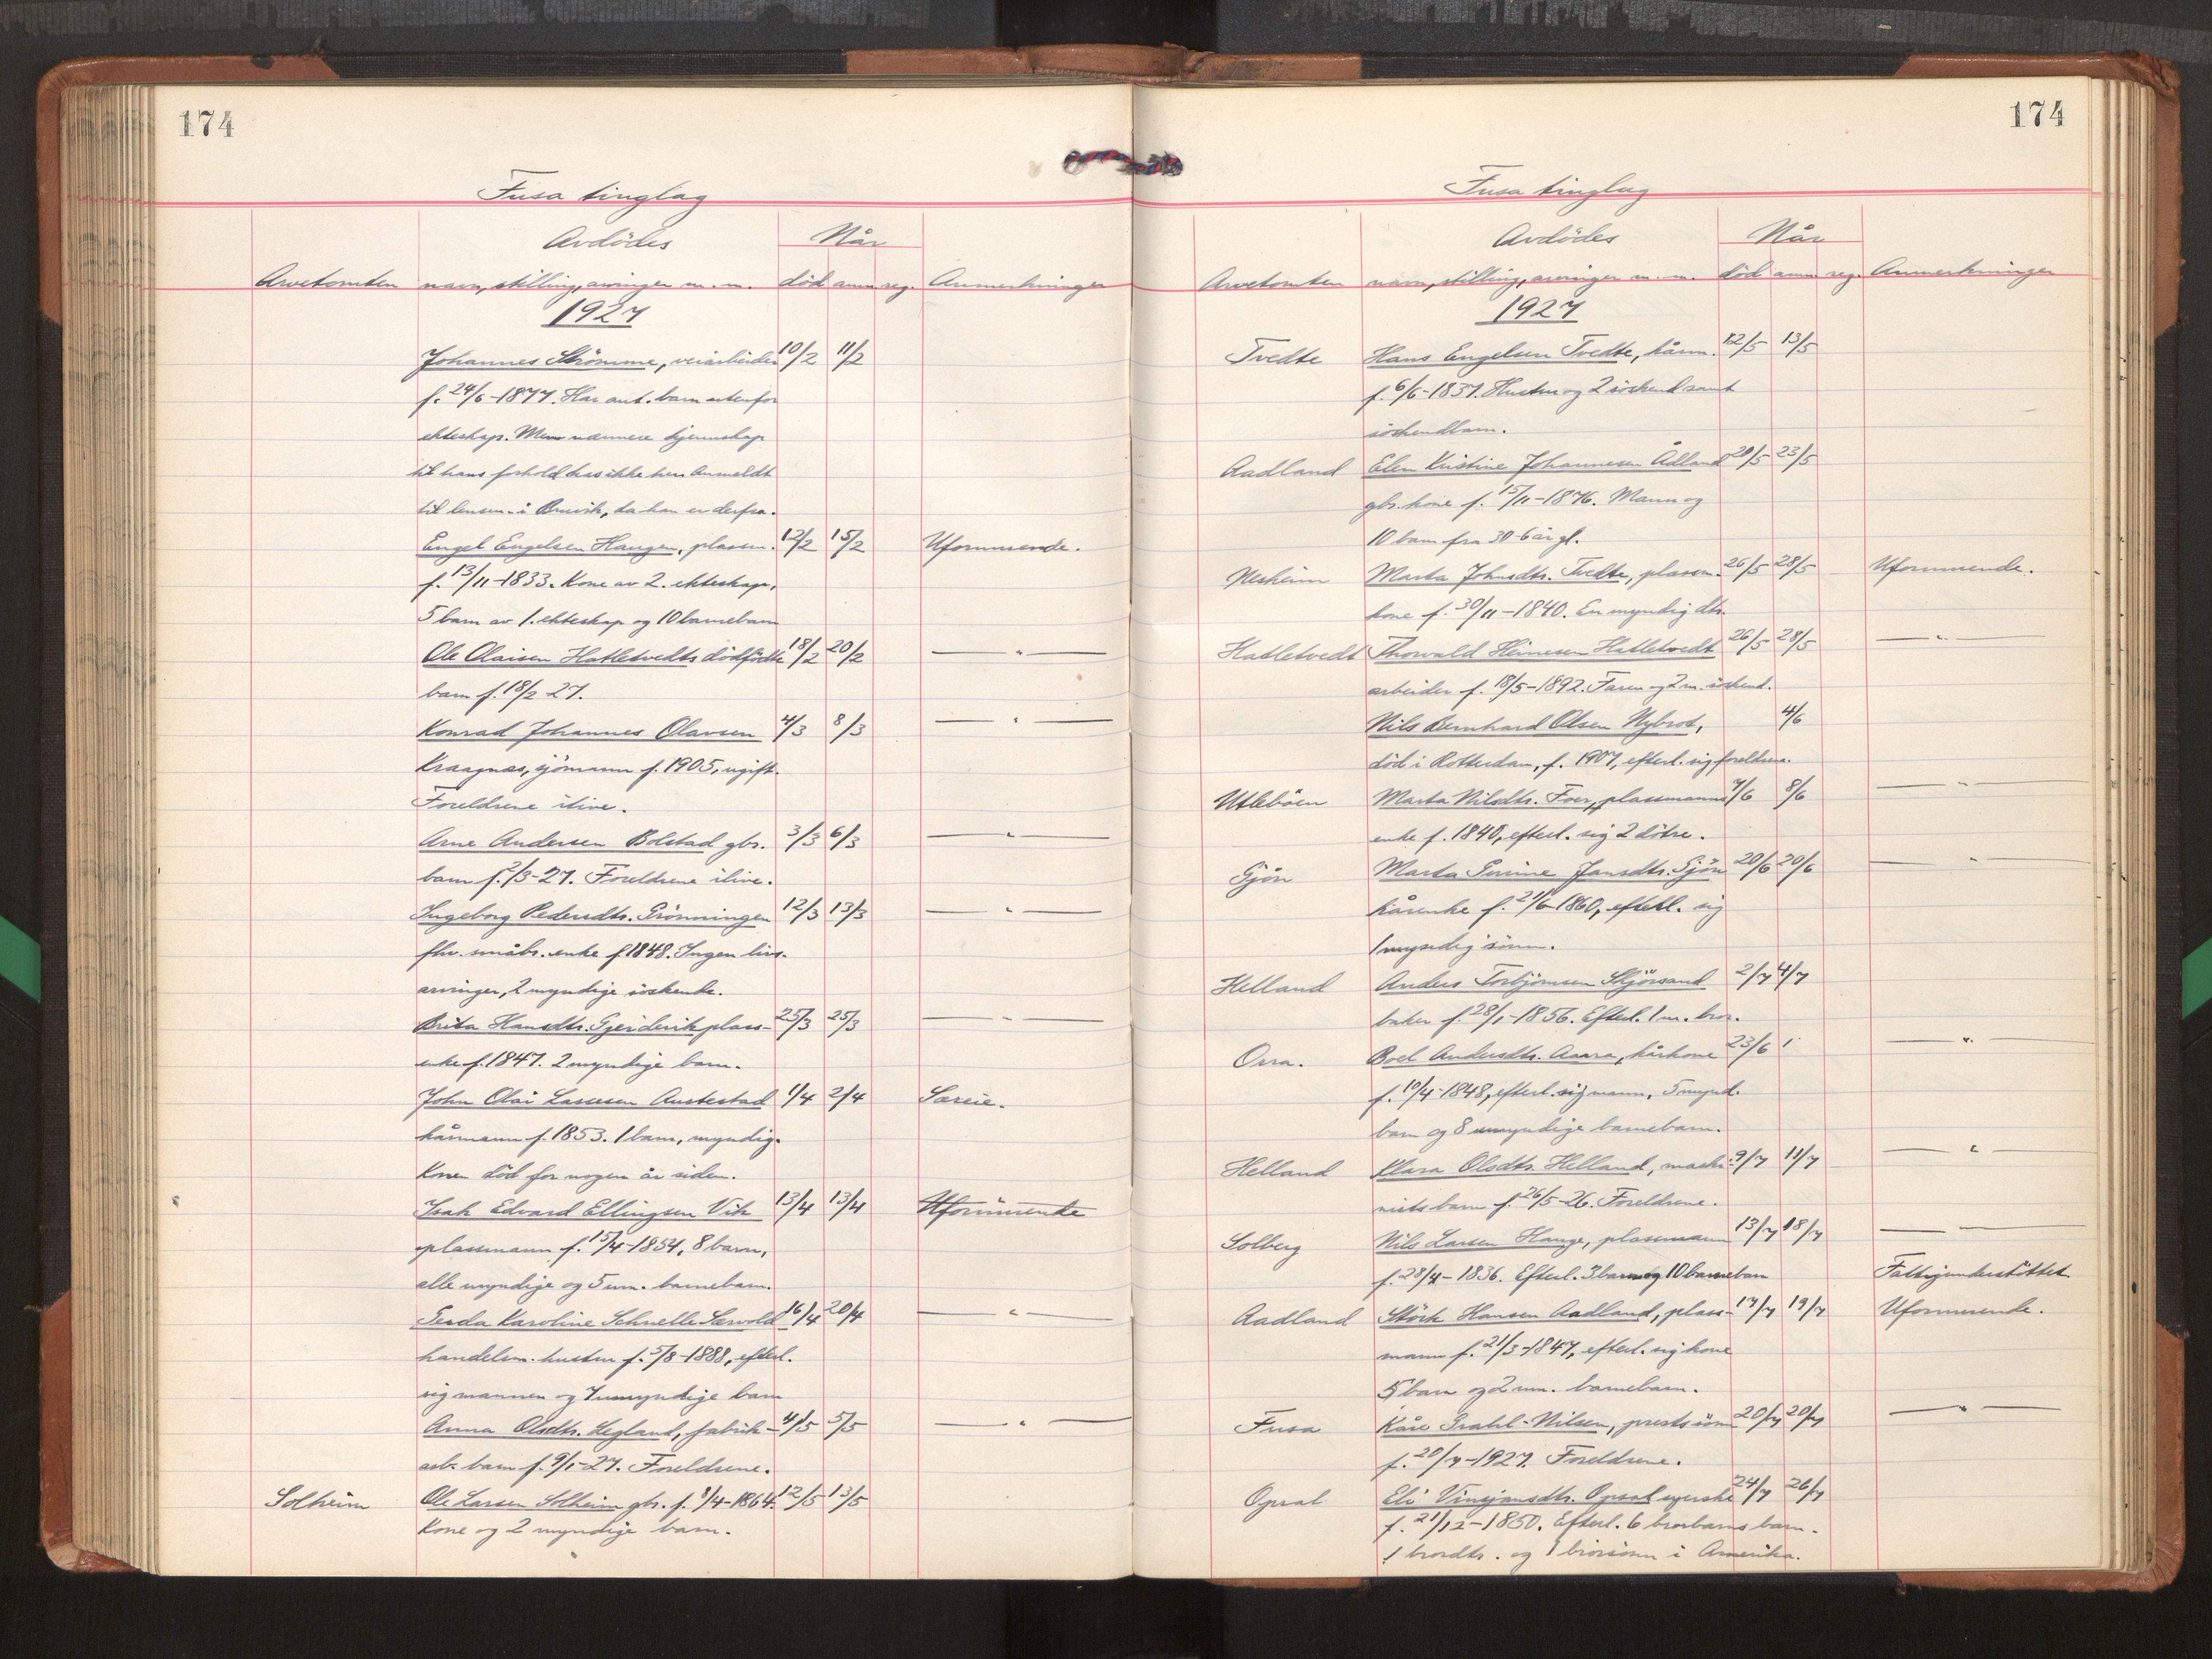 174
Fusa tinglag
Avdödes
Når
Arvetomten navn, stilling, arvinger m.m. död anm. reg. Anmerkninger
1927
Johannes Strömme, veiarbeider 10/2 11/2
f. 24/6-1877. Har ant. barn utenfor
ekteskap. Men nærmere kjennskap
til hans forhold has ikke her. Anmeldt
til lensm. i Bruvik, da han er derfra.
Engel Engelsen Haugen, plassm. 12/2 15/2 Uformuende.
f. 13/11-1833. Kone av 2. ekteskap,
5 barn av 1. ekteskap og 10 barnebarn
Ole Olaisen Hatletvedts dödfödte 18/2 20/2 — " —
barn f. 18/2 27.
Konrad Johannes Olavsen 4/3 8/3 — " —
Kraagnæs, sjömann f. 1905, ugift.
Foreldrene ilive.
Arne Andersen Bolstad gbr. 3/3 6/3 — " —
barn f. 2/3-27. Foreldrene ilive.
Ingeborg Pedersdtr. Grönningen 12/3 13/3 — " —
fhv. småbr. enke f. 1848. Ingen livs-
arvinger, 2 myndige söskende.
Brita Hansdtr. Gjerderik plass- 25/3 25/3 — " —
enke f. 1847. 2 myndige barn.
John Olai Lassesen Austestad 1/4 2/4 Særeie.
kårmann f. 1853. 1 barn, myndig.
Konen död for nogen år siden.
Isak Edvard Ellingsen Vik 13/4 13/4 Uformuende
plassmann f. 15/4-1854, 8 barn,
alle myndige og 5 um. barnebarn.
Gerda Karoline Schnelle Sævold 16/4 20/4 — " —
handelsm. hustru f. 5/8-1888, efterl.
sig mannen og 7 umyndige barn
Anna Olsdtr. Legland, fabrik- 4/5 5/5 — " —
arb. barn f. 9/1-27. Foreldrene.
Solheim Ole Larsen Solheim gbr. f. 8/4-1864. 12/5 13/5
Kone og 2 myndige barn.
174
Fusa tinglag
Avdödes
Når
Arvetomten navn, stilling, arvinger m.m. död anm. reg. Anmerkninger
1927
Tvedte Hans Engelsen Tvedte, kårm. 12/5 13/5
f. 6/6-1837. Hustru og 2 söskend samt
söskendbarn.
Aadland Elen Kristine Johannesen Ådland 20/5 23/5
gbr. kone f. 15/11-1876. Mann og
10 barn fra 30-6 år gl.
Nesheim Marta Johnsdtr. Tvedte, plassm. 26/5 28/5 Uformuende.
kone f. 30/11-1840. En myndig dtr.
Hatletvedt Thorvald Heinesen Hatletvedt 26/5 28/5 — " —
arbeider f. 18/5-1892. Faren og 2 m. söskend.
Nils Bernhard Olsen Nybrot, 4/6
död i Rotterdam, f. 1907, efterl. sig foreldrene.
Utleböen Marta Nilsdtr. Foer, plassmanns 7/6 8/6 — " —
enke f. 1840, efterl. sig 2 dötre.
Gjön Marta Gurine Jansdtr. Gjön 20/6 20/6 — " —
kårenke f. 21/6-1860, efterl. sig
1 myndig sönn.
Helland Anders Torbjörnsen Skjörsand 2/7 4/7
baker f. 28/1-1856. Efterl. 1 m. bror.
Ovra. Boel Andersdtr. Aavra, kårkone 23/6 1 — " —
f. 10/4-1848, efterl. sig mann, 5 mynd.
barn og 8 umyndige barnebarn.
Helland Klara Olsdtr. Helland, maski- 9/7 11/7 — " —
nists barn f. 26/5-26. Foreldrene.
Solberg Nils Larsen Hauge, plassmann 13/7 18/7 — —
f. 28/4-1836. Efterl. 3 barn og 10 barnebarn Fattigunderstöttet.
Aadland Störk Hansen Aadland, plass- 17/7 19/7 Uformuende.
mann f. 21/3-1847, efterl. sig kone
5 barn og 2 um. barnebarn.
Fusa Kåre Grahl-Nilsen, prests sönn 20/7 20/7 — " —
f. 20/7-1927. Foreldrene.
Opsal Eli Vinsjansdtr. Opsal syerske 24/7 26/7
f. 21/12-1850. Efterl. 6 brorbarns barn.
1 brordtr. og 1 brorsönn i Amerika.